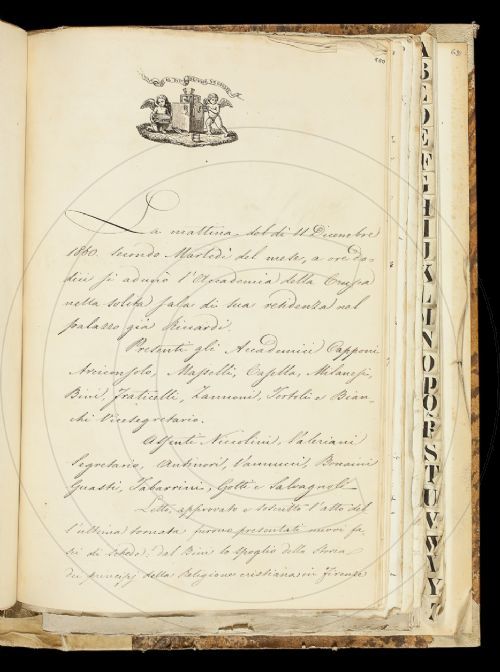 480
La mattina del dì 11 Dicembre
1860. secondo Martedì del mese, a ore do-
dici si adunò l'Accademia della Crusca
nella solita sala di sua residenza nel
palazzo già Riccardi.
Presenti gli Accademici Capponi
Arciconsolo, Masselli, Casella, Milanesi,
Bini, Fraticelli, Zannoni, Tortoli e Bian-
chi Vicesegretario.
Assenti, Niccolini, Valeriani
Segretario, Antinori, Vannucci, Bonaini
Guasti, Tabarrini, Gotti e Salvagnoli.
Letto, approvato e soscritto l'atto del
l'ultima tornata, furono presentati nuovi fa-
sci di schede; dal Bini lo spoglio della Storia
dei principj della Religione cristiana in Firenze
A
B
C
D
E
F
G
H
I
J
K
L
M
N
O
P
Q
R
S
T
U
V
W
X
Y
Z